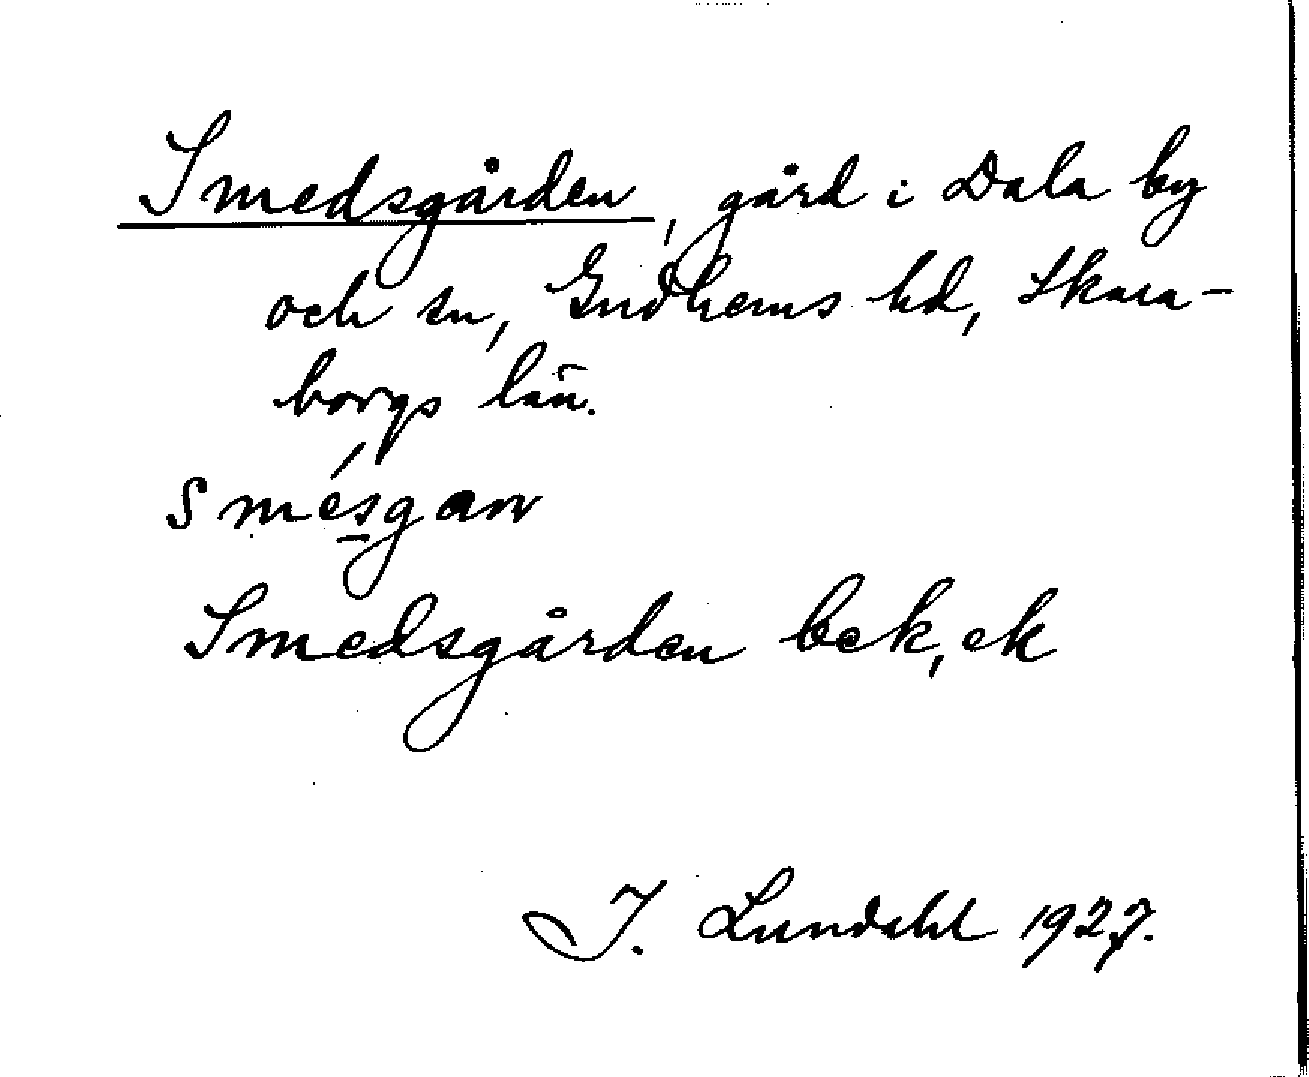 Smedsgården, gård i Dala by
och sn, Gudhems hd, Skara-
borgs län.
Smedsgården bek, ek
I. Lundahl 1927.